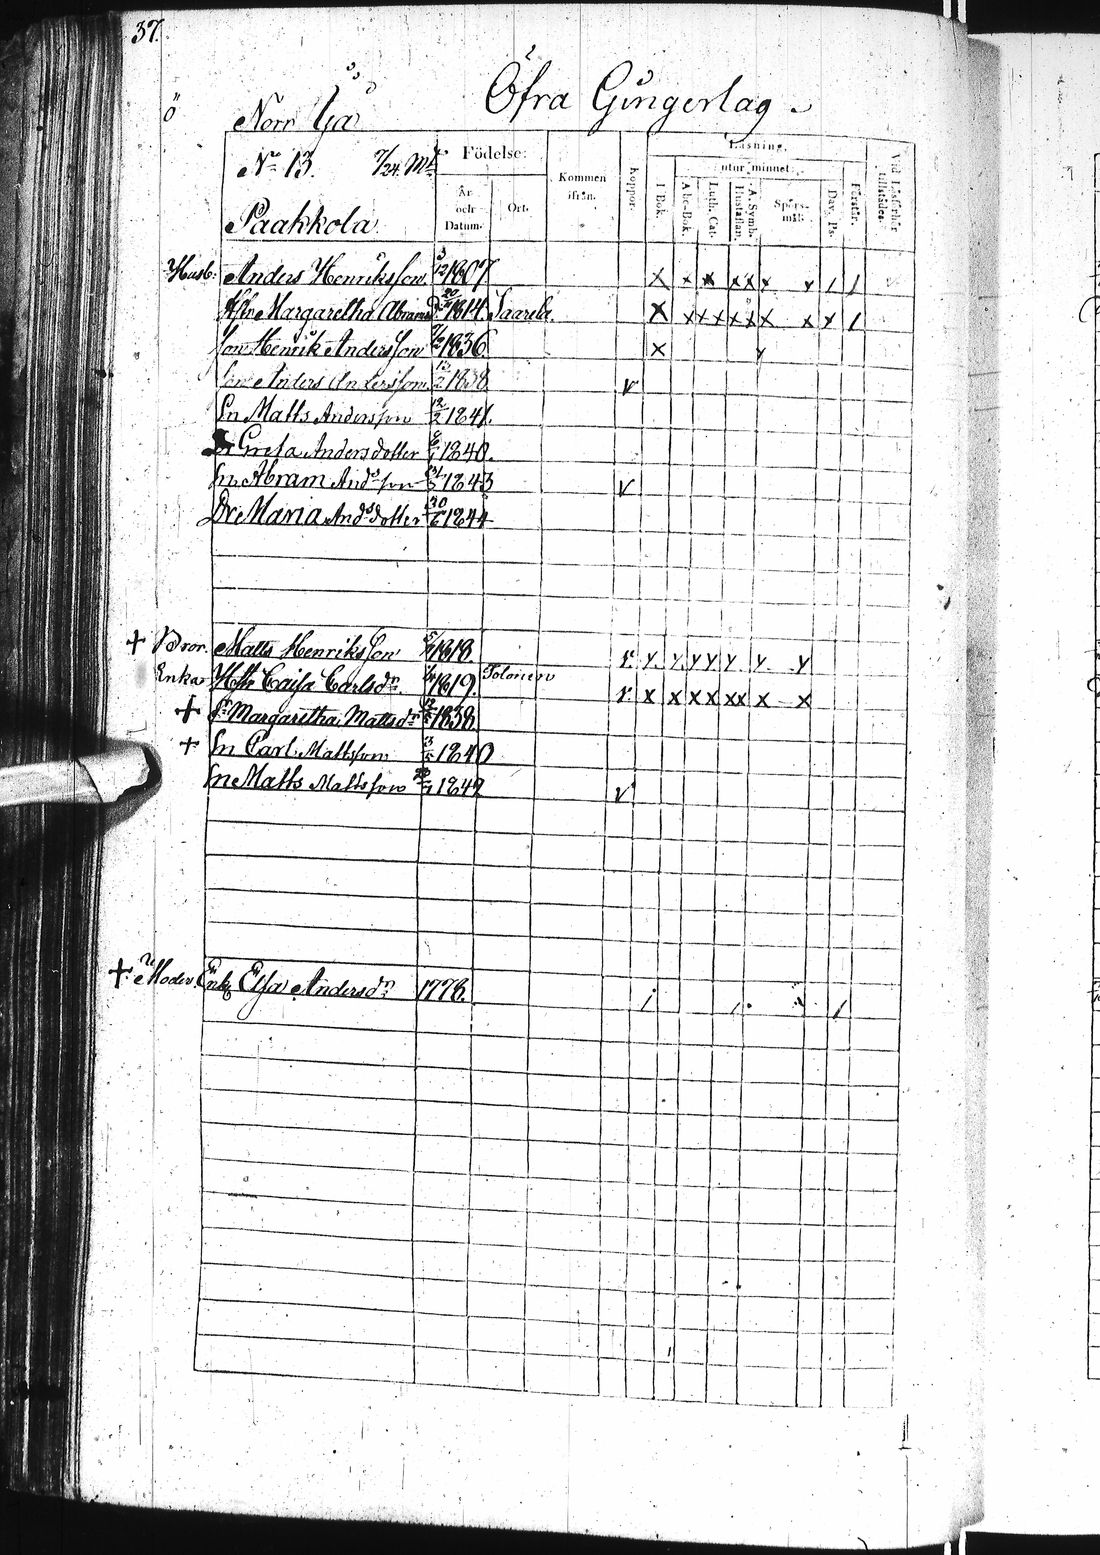 37.
Öfra Gingerlag.
ö
Norr Ijå
No 13. 7/24. Mtl
Paakkola
Födelse:
År och Datum.
Ort.
Kommen ifrån.
Koppor.
Läsning,
utur minnet:
I Bok.
Abc-Bok.
Luth. Cat.
Hustaflan.
A. Symb.
Spörsmål.
Dav. Ps.
Förstår.
Vid Läsförhör tillstädes.
Husb: Anders Henriksson 3/12 1807 X x x x x x x / /
Hu Margaretha Abramsdr 1814. Saarela. X x x x x x x x y /
Son Henrik Andersson 1836 X y
Son Anders Andersson 13/2 1838 v
Sn Matts Andersson 12/2 1841.
Dr Greta Andersdotter 1840.
Sn Abram Andsson 1843 v
Dr Maria Andsdotter 30/6 1844
+ Bror. Matts Henriksson 1818. r. y y y y y y y
Enka Hu Caisa Carlsdr 1819 Tolonen r x x x x x x x x
+ Dr Margaretha Mattsdr 1838.
+ Sn Carl Mattsson 3/5 1840
Sn Matts Mattsson 1842 v
+ Moder. Enk Elsa Andersdr 1778. / / /